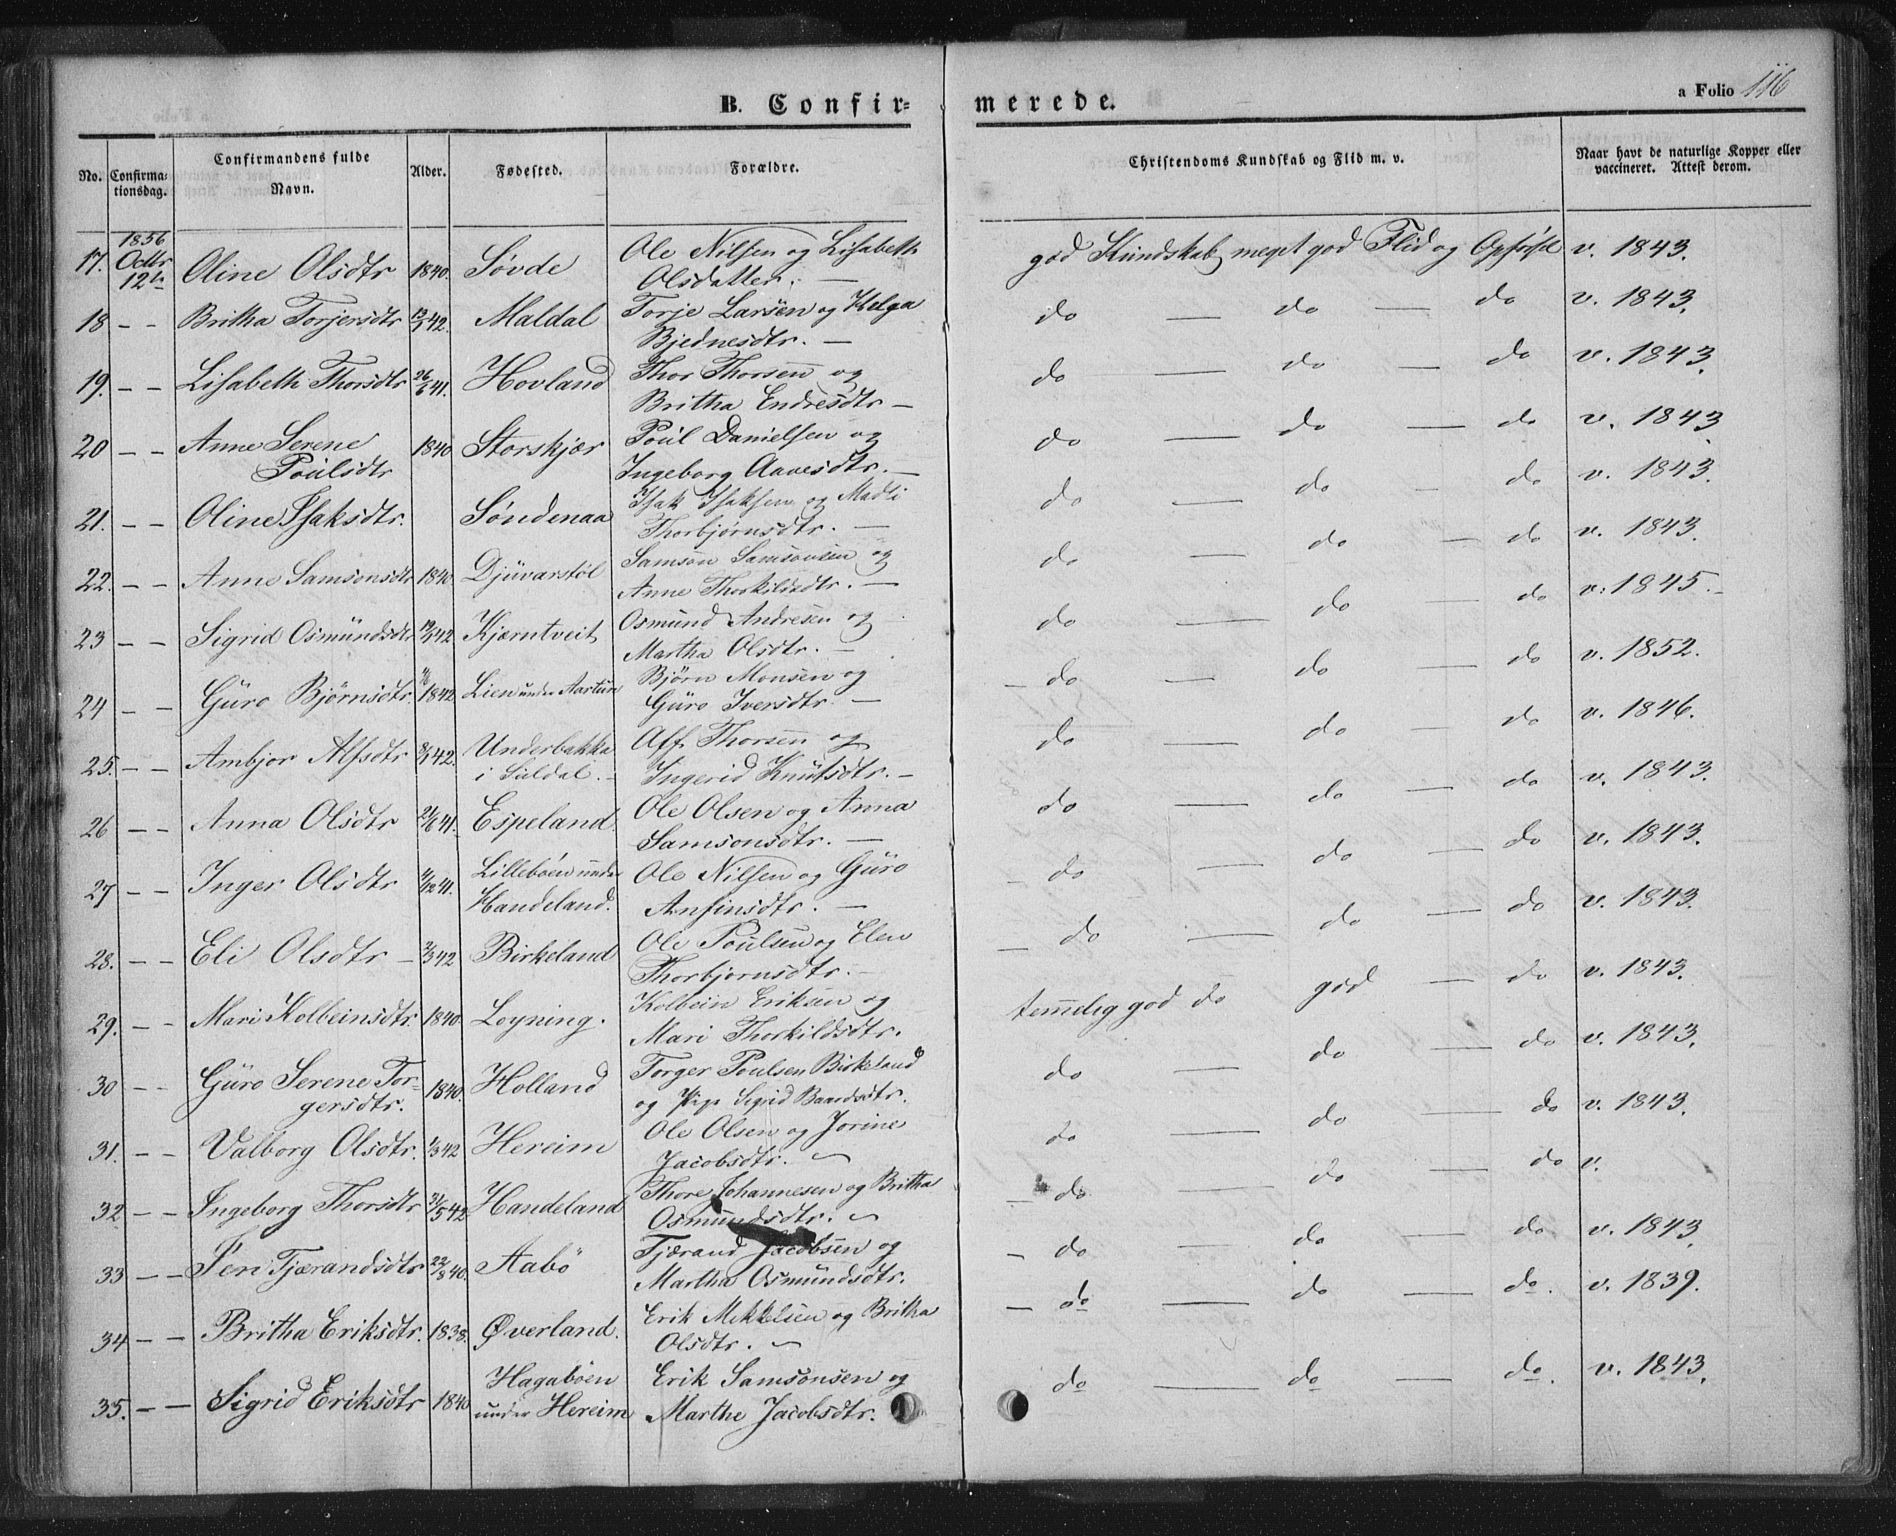 B. Confir=
merede.
a Folio 116
No.
Confirma-
tionsdag.
Confirmandens fulde
Navn.
Alder.
Fødested.
Forældre.
Christendoms Kundskab og Flid m. v.
Naar havt de naturlige Kopper eller
vaccineret. Attest derom.
1856
17. Octbr Oline Olsdtr 1840. Søvde Ole Nilsen og Lisabeth god Kundskab, meget god Flid og Opførsel v. 1843.
12te Olsdatter. —
18 – – Britha Torjersdtr 42. Maldal Torje Larsen og Helga do — do — do v. 1843.
Bjednesdtr. —
19. – – Lisabeth Thorsdtr 26/6 41. Hovland Thor Thorsen og do — do — do v. 1843.
Britha Endresdtr —
20 – – Anne Serene 1840 Storskjær Poul Danielsen og do — do — do v. 1843.
Poulsdtr Ingeborg Aavesdtr. —
21. – – Oline Isaksdtr. Søndenaa Isak Isaksen og Madli do — do – do v. 1843.
Thorbjørnsdtr. —
22. – – Anne Samsonsdtr 1840. Djuvarstøl Samson Samsonsen og do — do – do v. 1843.
Anne Thorkildsdtr. —
23 – – Sigrid Osmundsdtr 42 Kjærntveit Osmund Andresen og do — do — do v. 1845.–
Martha Olsdtr. —
24 – – Guro Bjørnsdtr. 1842 Lien under Aartun Bjørn Monsen og – do — do — do v. 1852.
Guro Iversdtr. —
25. – – Ambjor Alfsdtr 42. Underbakka Alf Thorsen og do — do – do v. 1846.
i Suldal. – Ingerid Knutsdtr. –
26 – – Anna Olsdtr 21/6 41. Espeland. Ole Olsen og Anna do — do — do v. 1843.
Samsonsdtr. —
27 – – Inger Olsdtr 41. Lillebøen under Ole Nilsen og Guro – do — do — do v. 1843.
Handeland. Anfinsdtr. —
28. – – Eli Olsdtr – 2/3 42 Birkeland Ole Poulsen og Elen – do — do — do v. 1843.
Thorbjornsdtr. –
29. – – Mari Kolbeinsdtr. 1840. Loyning. Kolbein Eriksen og temmelig god do god — do v. 1843.
Mari Thorkildsdtr.
30 – – Guro Serene Tor- 1840. Holland Torger Poulsen Birkeland do — do — do v. 1843.
gersdtr. og Pige Sigrid Baardsdtr.
31. – – Valborg Olsdtr. 1/3 42 Hereim Ole Olsen og Jorine do — do — do v. 1843.
Jacobsdtr. –
32 – – Ingeborg Thorsdtr 31/5 42 Handeland Thore Johannesen og Britha – do — do — do v.
Osmundsdtr. –
33 – – Sen Tjærandsdtr 22/8 40. Aabö Tjærand Jacobsen og – do — do — do v. 1843.
Martha Osmundsdtr.
34 – – Britha Eriksdtr. 1838. Øverland. Erik Mikkelsen og Britha – do — do — do. v. 1839.
Olsdtr. –
35. – – Sigrid Eriksdtr 1840 Hagabøen Erik Samsonsen og do — do — do. v. 1843.
under Hereim Marthe Jacobsdtr.